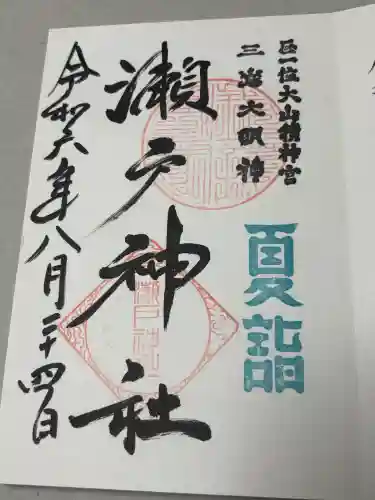 正一位大山積神宮
三嶌大明神
夏詣
瀬戸神社
令和六年八月二十四日